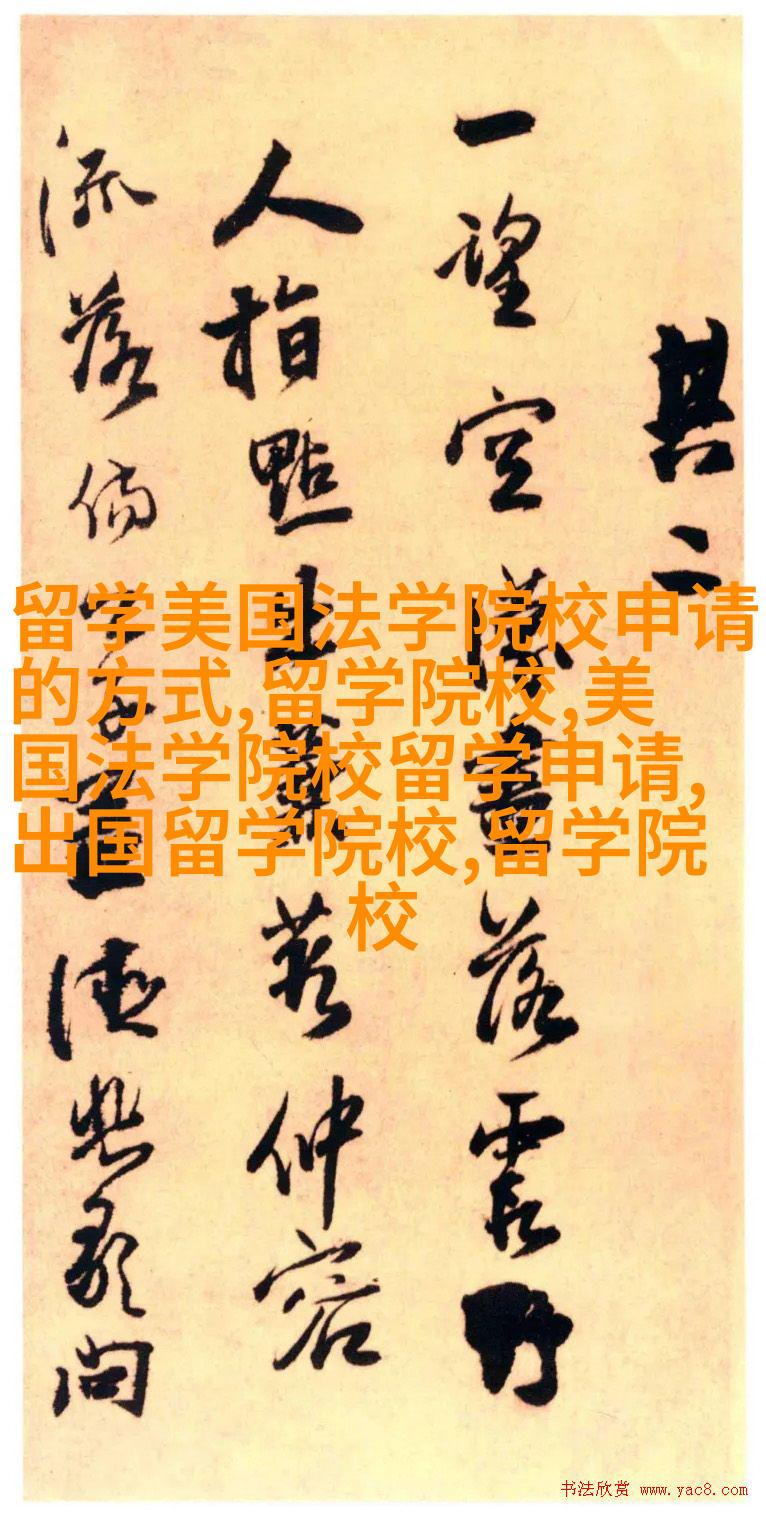 其二
一望空書落霞野
人指點若仲容
流落尚問
留学美国法学院校申请
的方式,留学院校,美
国法学院校留学申请,
出国留学院校,留学院
校
书法欣赏 www.yac8.com